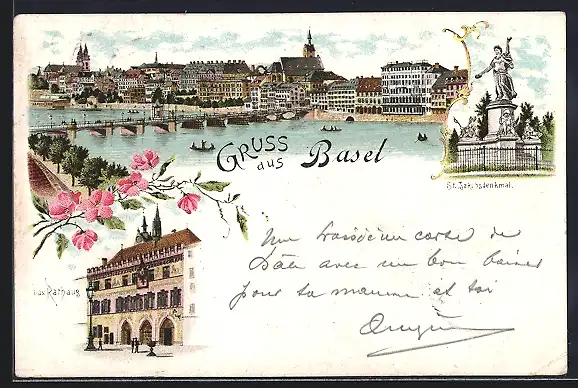 GRUSS aus Basel
St. Jakobsdenkmal.
Das Rathaus
Une troisième carte de
avec un bon baiser
pour ta maman et toi